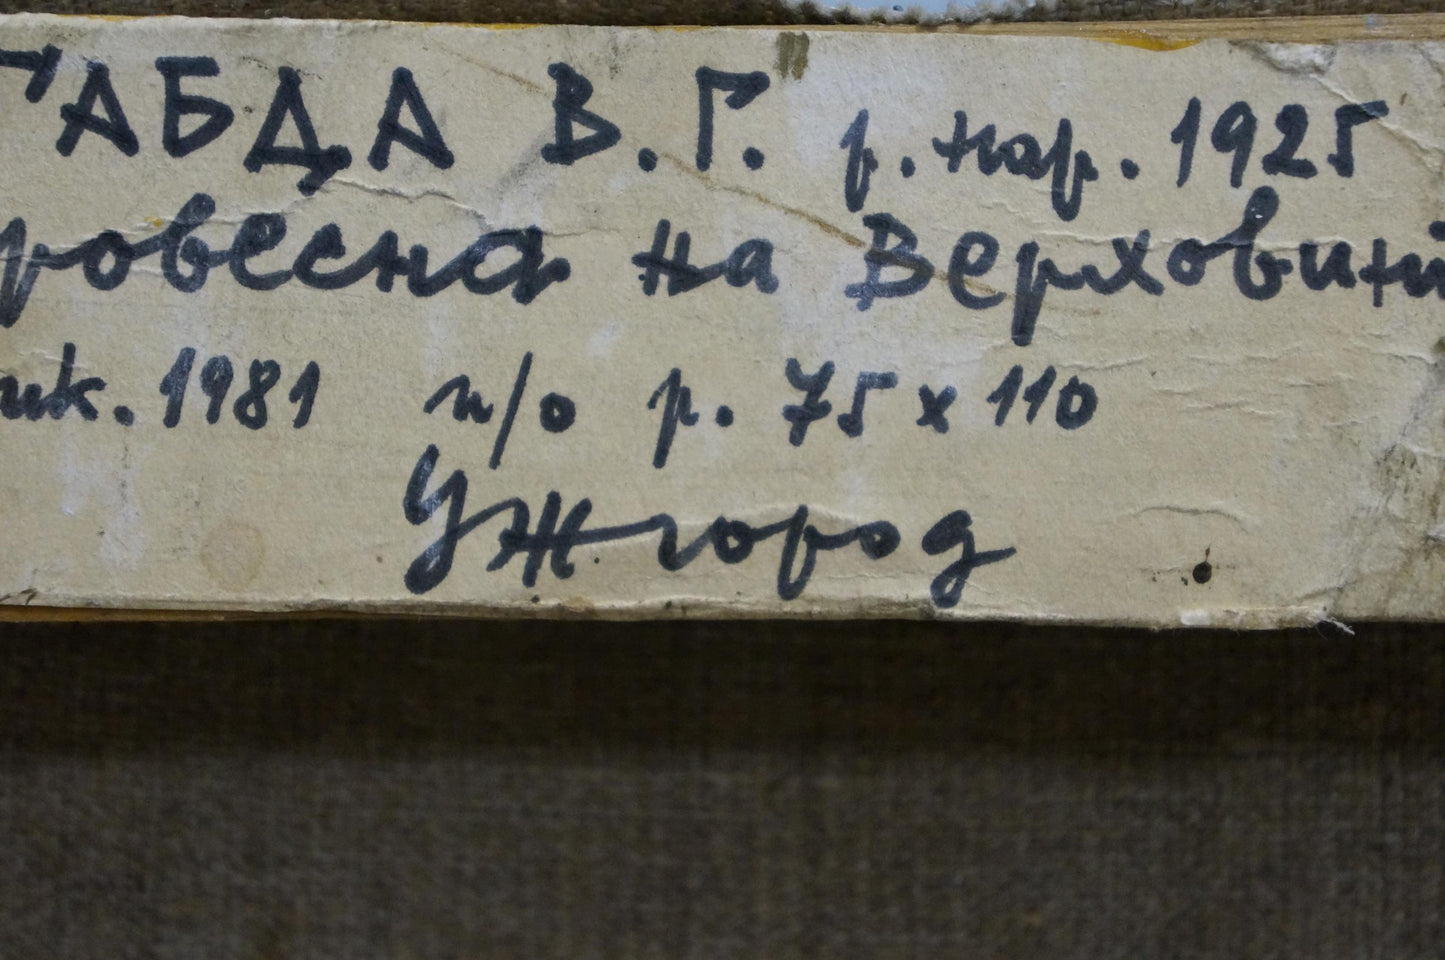 ГАБДА В.Г. р. нар. 1925
ровесна на Верховині
ик. 1981 п/о р. 75 х 110
Ужгород